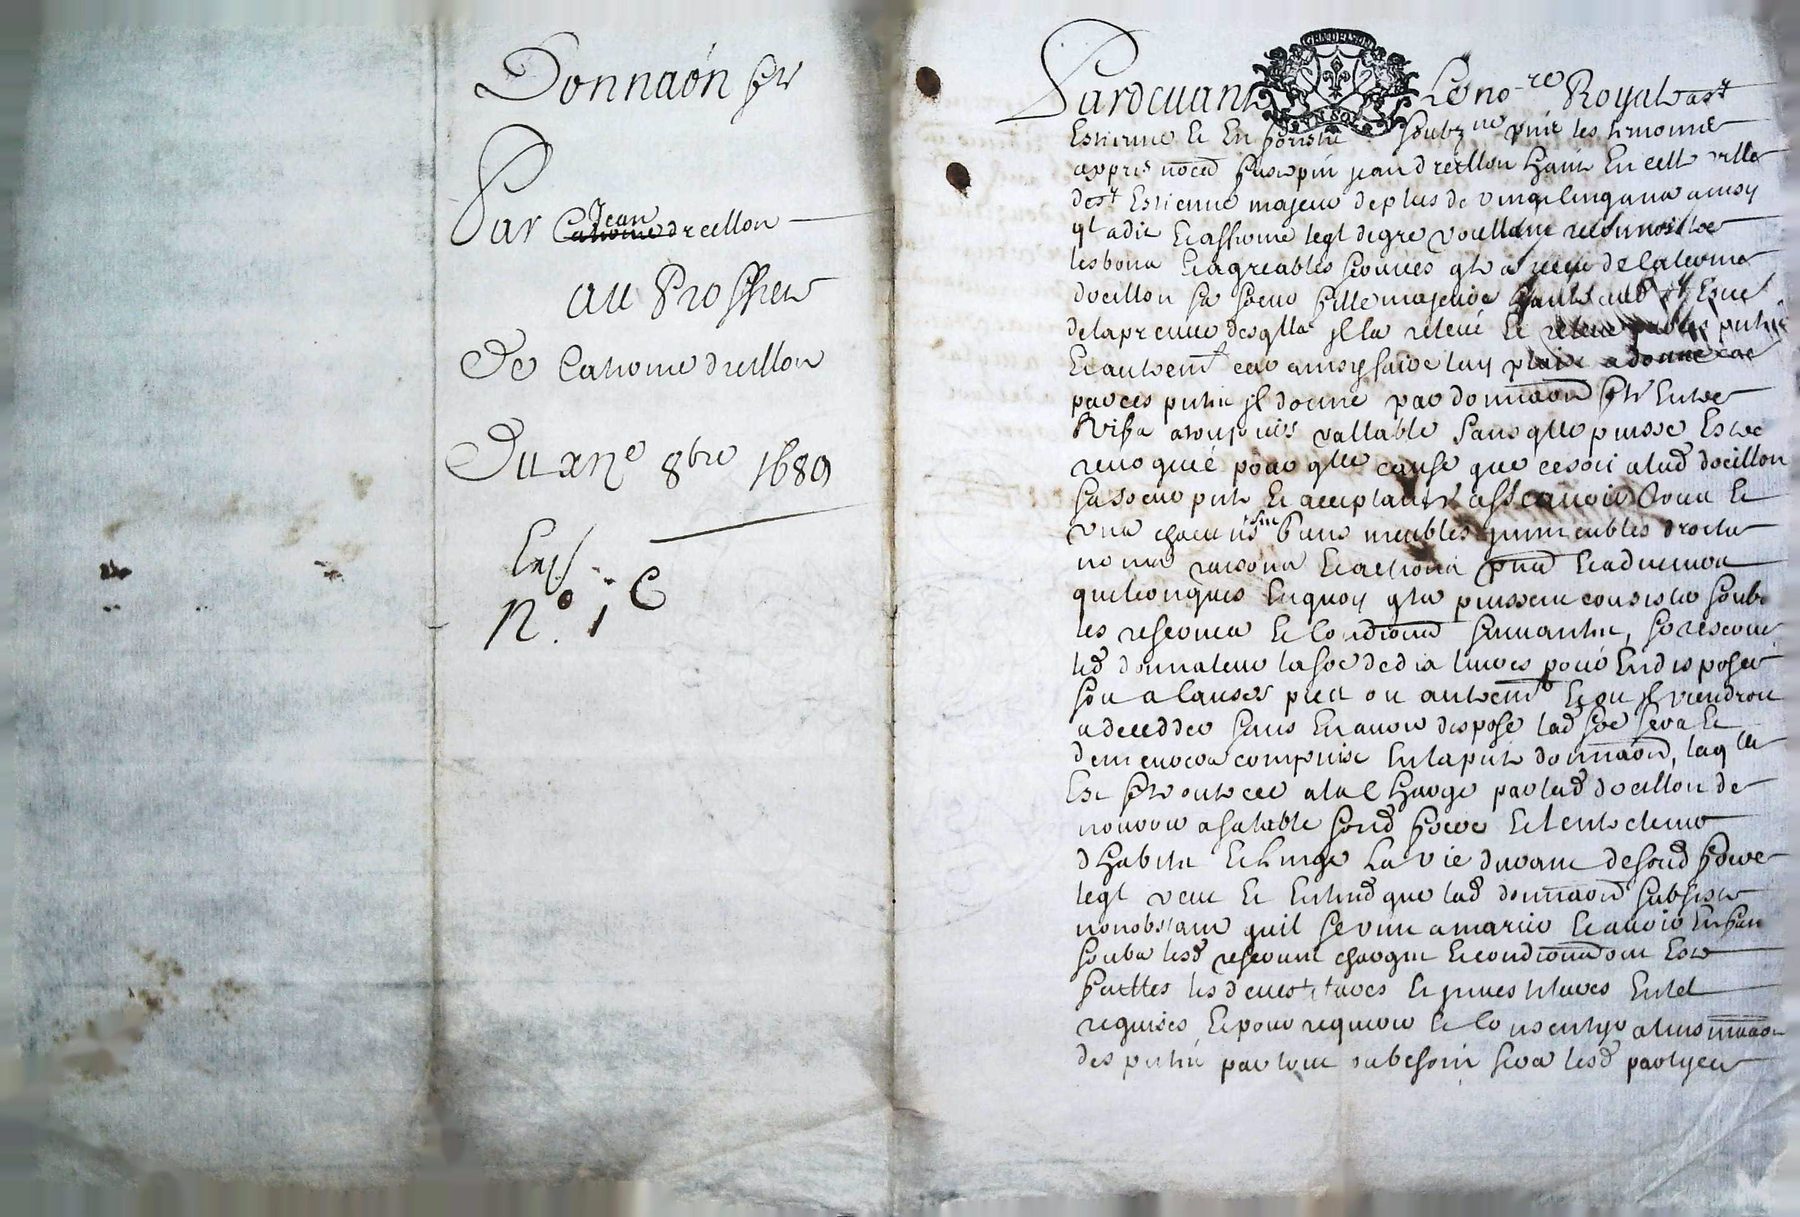 Donnaôn ptr
Par Jean dreillon
au Proffict
De Catherine dreillon
Du xne 8bre 1689
N.o 1 C
Pardevant Le no.re Royal a st
Estienne Et En soubzne pnt les tesmoins
appres només pnt jean dreillon hant En cette ville
de st Estienne majeur de plus de vingt cinq ans ainsy
ql a dit Et affirme leql de gre voullant recognoistre
les bons Et agreables services ql a receu de Caterine
dreillon sa soeur fille majeure
de la preuve desqlles il la releve Et releve par ces pntes
Et autremt car ainsy faire luy plaist a donné
par ces pntes il donne par donnaon Entre
Vifs a toujours vallable sans qlle puisse Estre
revoquée pour qlle cause que ce soit a lad dreillon
sa soeur pnte Et acceptante assçavoir tous Et
uns chacuns ses biens meubles immeubles droits
noms raisons Et actions pnts Et advenir
quelconques En quoy qlz puissent consister soubz
les reserves Et conditions suivantes, se reserve
led donnateur la some de dix livres pour En disposer
soit a causes pies ou autremt Et ou il viendroit
a decedder sans En avoir disposé lad some sera Et
demeurera comprise En la pnte donnaon, laqlle
Est faite outre ce a la Charge par lad dreillon de
nourrir a sa table sond frere Et l'entretenir
d'habits Et Linge La vie durant de sond frere
leql veut Et Entend que lad donnaon subsiste
nonobstant quil se vint a marier Et avoir Enfans
soubz lesd reserves charges Et conditions ont Este
faittes les devestitures Et investitures En tel
requises Et pour requerir Et consentir a l'insinuaon
des pntes par tout ou besoin sera lesd partyes